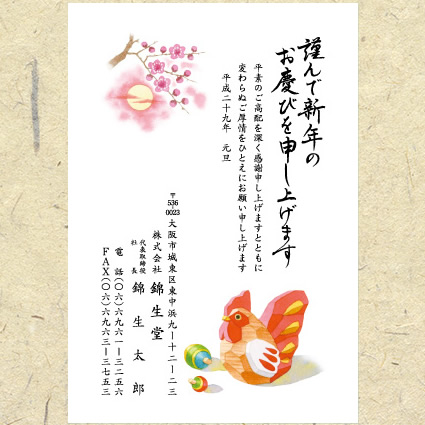 謹んで新年の
お慶びを申し上げます
平素のご高配を深く感謝申し上げますとともに
変わらぬご厚情をひとえにお願い申し上げます
平成二十九年　元旦
〒536-0023
大阪市城東区東中浜九ー十二ー二三
株式会社　錦生堂
代表取締役
社長　錦生太郎
電話（〇六）六九六一ー三二五六
ＦＡＸ（〇六）六九六三ー三七五三